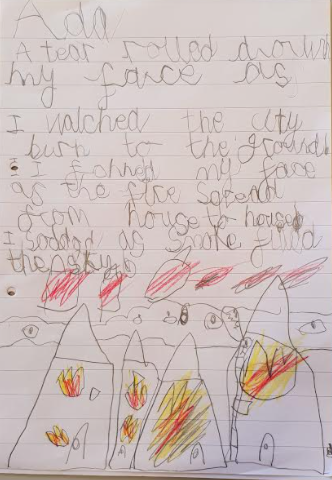 Ada
A tear rolled down
my face as
I watched the city
burn to the ground.
I my face
as the fire spread
from house to house
I sobbed as smoke filld
the sky